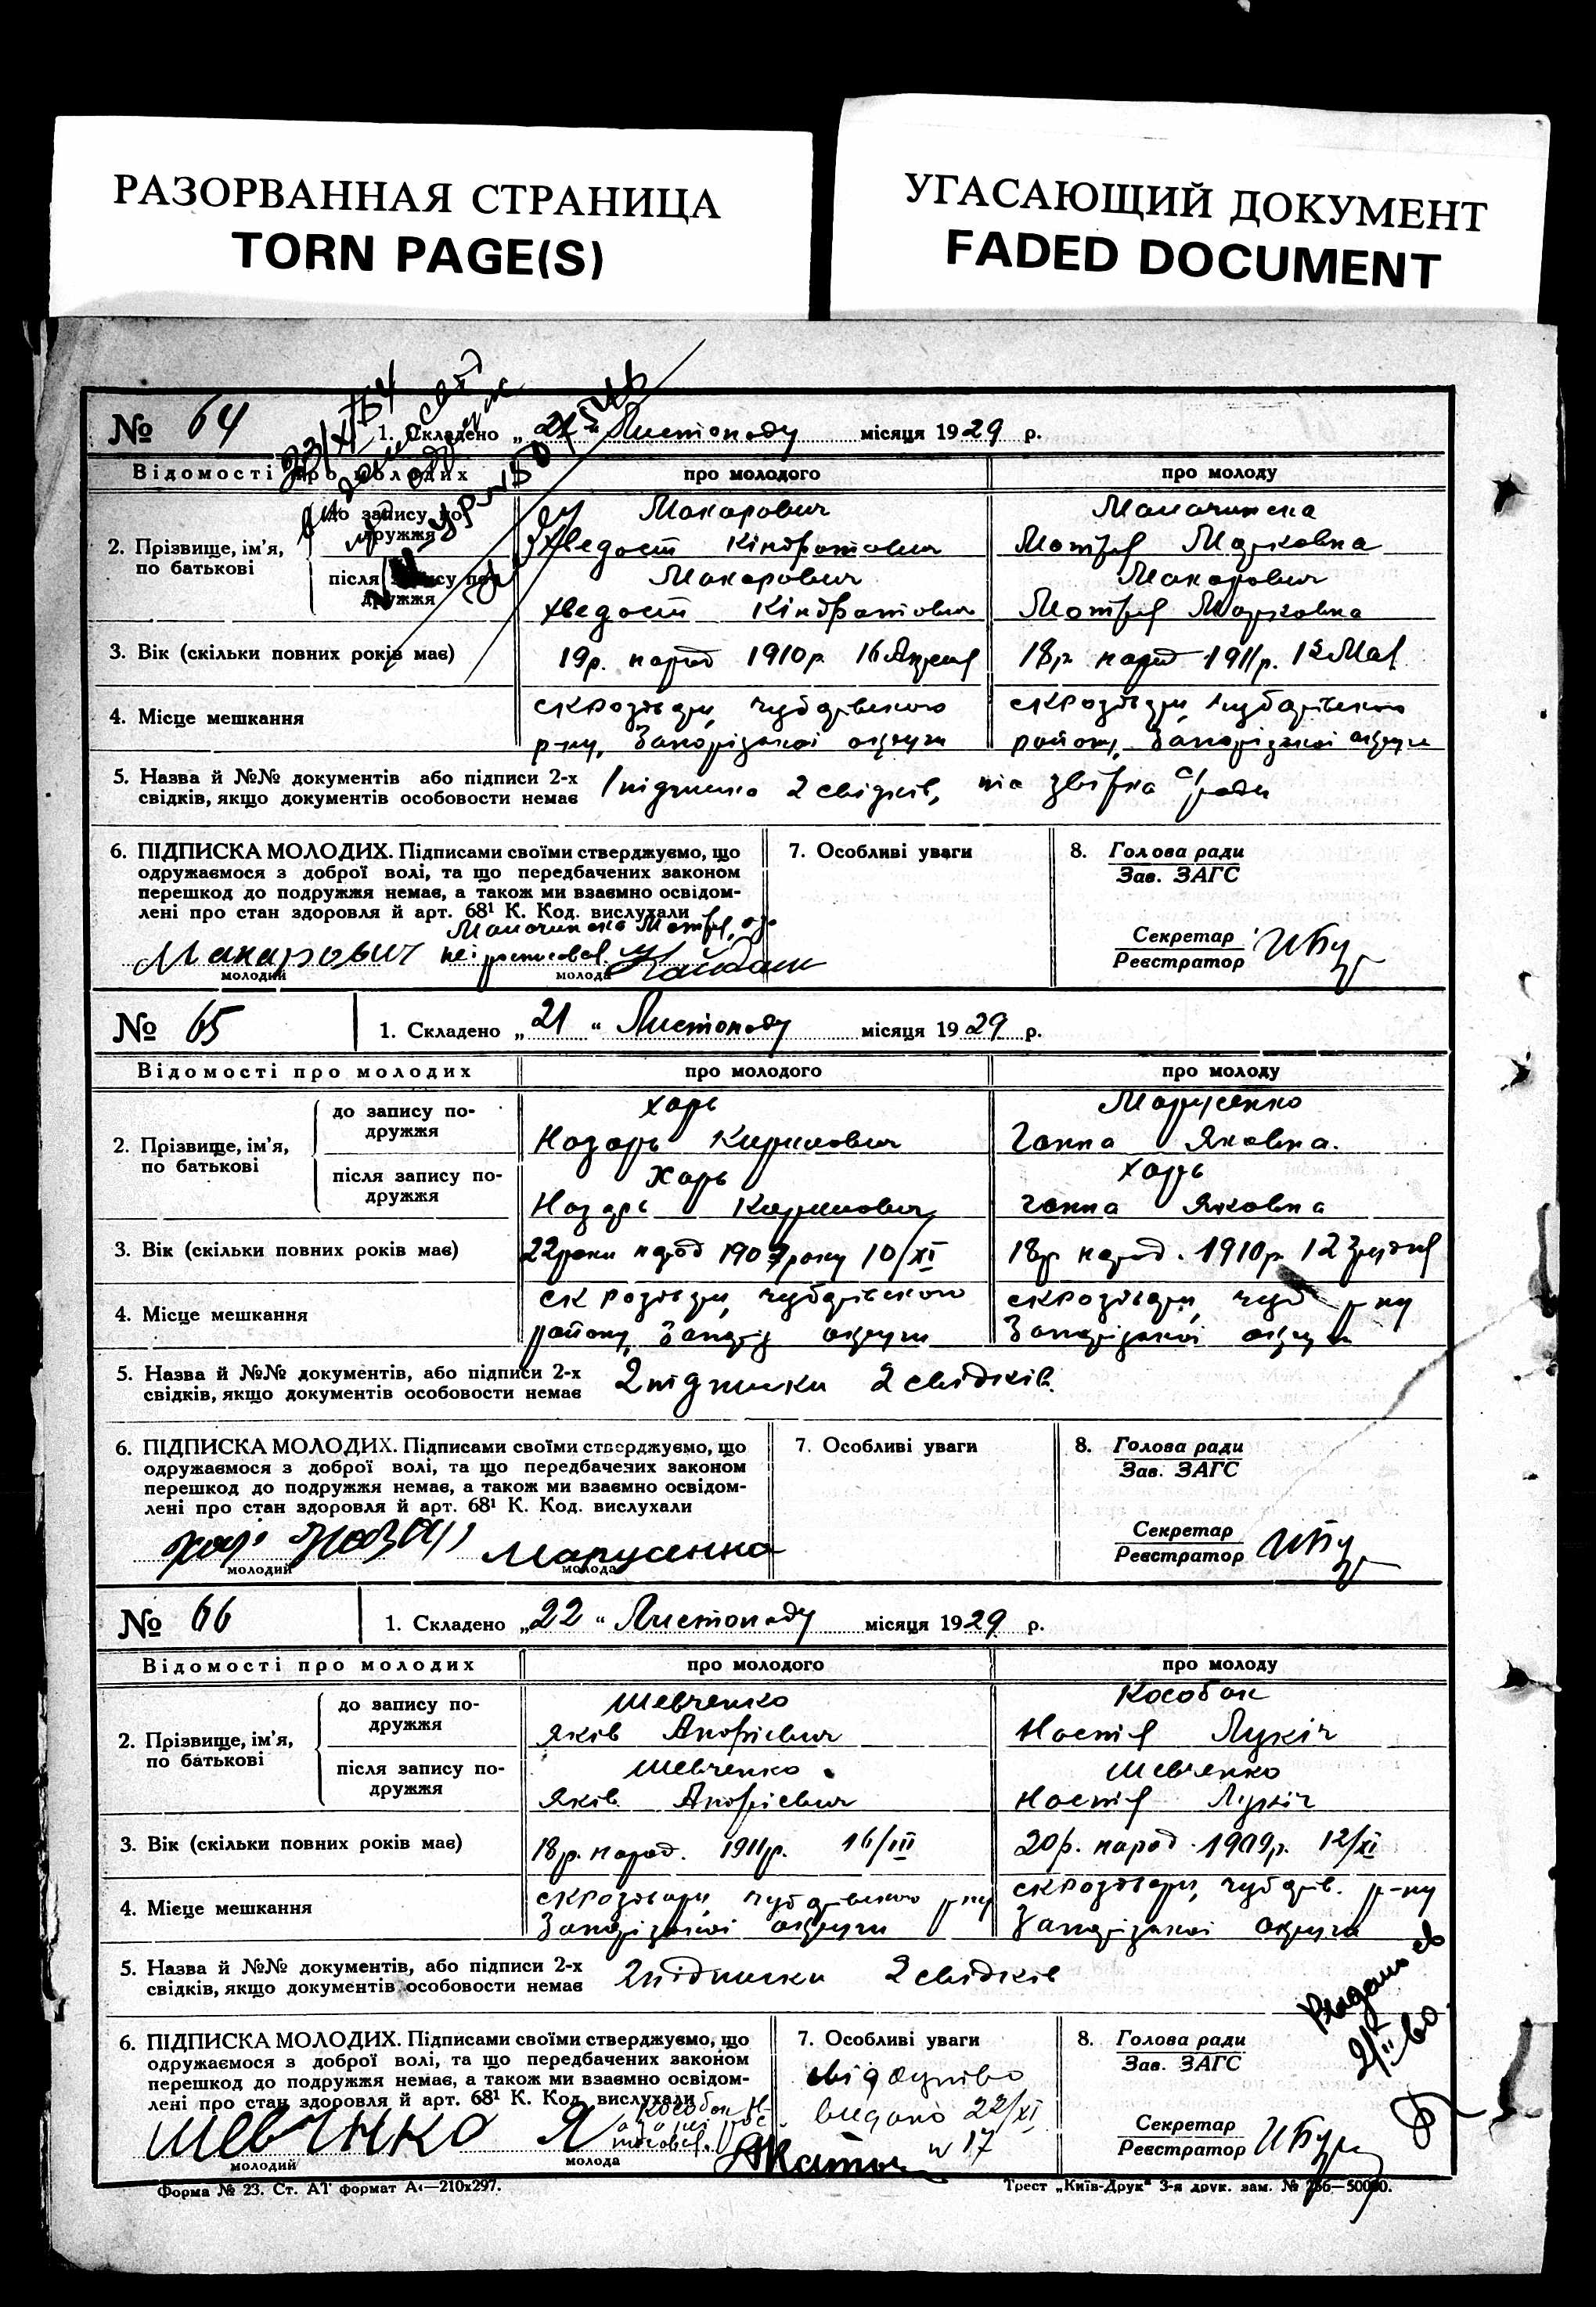 РАЗОРВАННАЯ СТРАНИЦА
TORN PAGE(S)
УГАСАЮЩИЙ ДОКУМЕНТ
FADED DOCUMENT
№ 64
1. Складено „21“ Листопаду місяця 1929 р.
Відомості про молодих
про молодого
про молоду
2. Прізвище, ім'я, по батькові
до запису подружжя
Макарович
Хведост Кіндратович
Мотря Марковна
після запису подружжя
Макарович
Хведост Кіндратович
Макарович
Мотря Марковна
3. Вік (скільки повних років має)
19р. народ 1910р. 16 Апреля
18р. народ 1911р. 12 Мая
4. Місце мешкання
с. К Роздори, Чубарівського
р-ну, Запорізької округи
с. К Роздори, Чубарівського
району, Запорізької округи
5. Назва й №№ документів або підписи 2-х
свідків, якщо документів особовости немає
підписка 2 свідків,
6. ПІДПИСКА МОЛОДИХ. Підписами своїми стверджуємо, що
одружаємося з доброї волі, та що передбачених законом
перешкод до подружжя немає, а також ми взаємно освідом-
лені про стан здоров'я й арт. 68¹ К. Код. вислухали
Макарович
молодий
молода
7. Особливі уваги
8. Голова ради
Зав. ЗАГС
Секретар
Реєстратор
№ 65
1. Складено „21“ Листопаду місяця 1929 р.
Відомості про молодих
про молодого
про молоду
2. Прізвище, ім'я,
по батькові
до запису по-
дружжя
Харь
Назарь Кирилович
Марусенко
Ганна Яковна.
після запису по-
дружжя
Харь
Назарь Кирилович
Харь
Ганна Яковна
3. Вік (скільки повних років має)
22 роки народ 1907 року 10/XI
18р. народ. 1910р. 12 Грудня
4. Місце мешкання
с. К Роздори, Чубарівського
району, Запоріз округи
с. К Роздори, Чуб р-ну
Запорізької округи
5. Назва й №№ документів, або підписи 2-х
свідків, якщо документів особовости немає
2 підписки 2 свідків.
6. ПІДПИСКА МОЛОДИХ. Підписами своїми стверджуємо, що
одружаємося з доброї волі, та що передбачених законом
перешкод до подружжя немає, а також ми взаємно освідом-
лені про стан здоровля й арт. 68¹ К. Код. вислухали
Харь Назар
Марусенко
молодий
молода
7. Особливі уваги
8. Голова ради
Зав. ЗАГС
Секретар
Реєстратор
№ 66
1. Складено „22“ Листопаду місяця 1929 р.
Відомості про молодих
про молодого
про молоду
2. Прізвище, ім'я,
по батькові
до запису по-
дружжя
Шевченко
Яків Андрієвич
Кособок
Настя Лукіч
після запису по-
дружжя
Шевченко
Яків Андрієвич
Шевченко
Настя Лукіч
3. Вік (скільки повних років має)
18р. народ. 1911р. 16/III
20р. народ. 1909р. 12/XI
4. Місце мешкання
с. К Роздори, Чубарівського р-ну
Запорізької округи
с. К Роздори, Чубарів. р-ну
Запорізької округи
5. Назва й №№ документів, або підписи 2-х
свідків, якщо документів особовости немає
2 підписки 2 свідків
6. ПІДПИСКА МОЛОДИХ. Підписами своїми стверджуємо, що
одружаємося з доброї волі, та що передбачених законом
перешкод до подружжя немає, а також ми взаємно освідом-
лені про стан здоровля й арт. 68¹ К. Код. вислухали
Шевчнко Я
молодий
молода
7. Особливі уваги
видано 22/XI
N 17
8. Голова ради
Зав. ЗАГС
Секретар
Реєстратор
Форма № 23. Ст. АТ формат А4—210x297.
Трест „Київ-Друк“ 3-я друк. зам. № 266—50000.